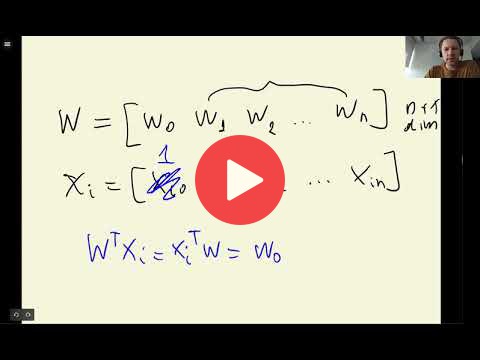 W = [w₀ w₁ w₂ ... wₙ] n+1 dim
1
xᵢ = [ ... xᵢₙ]
Wᵀxᵢ = xᵢᵀw = w₀